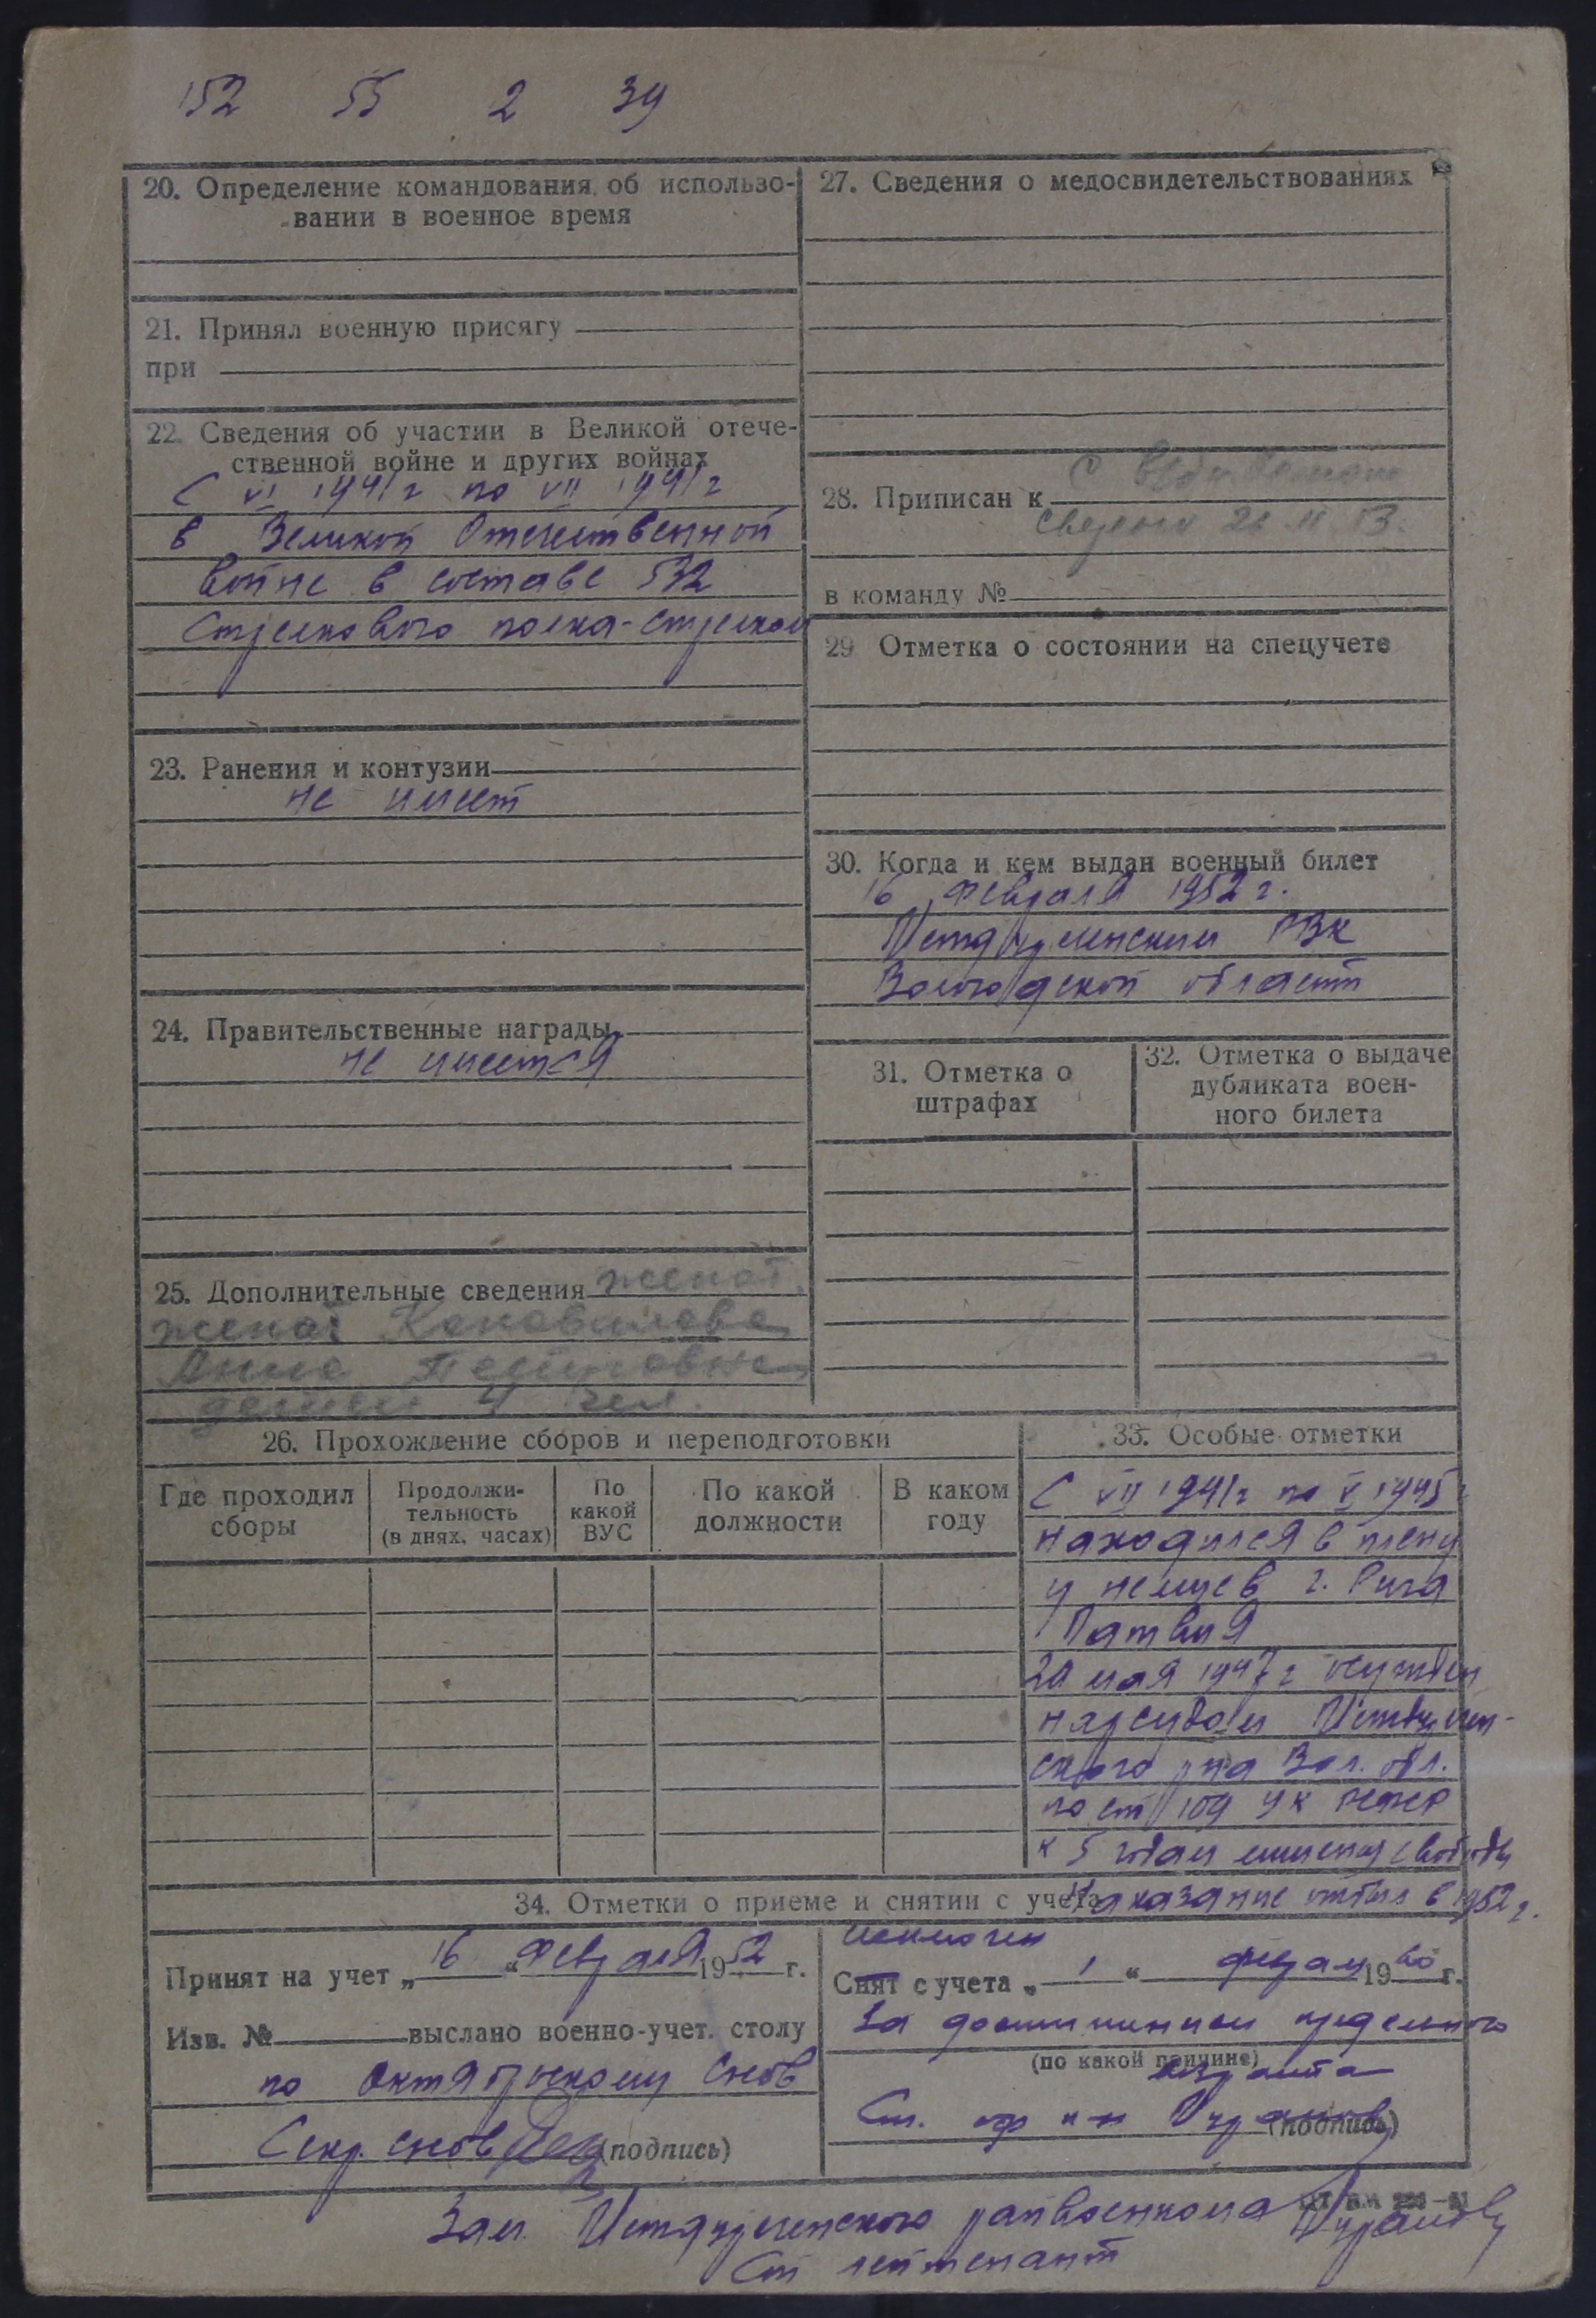 152 55 2 39
20. Определение командования об использо-
вании в военное время
21. Принял военную присягу
при
22. Сведения об участии в Великой отече-
ственной войне и других войнах
С VI 1941г по VII 1941г
в Великой Отечественной
войне в составе 532
Стрелкового полка-стрелком
23. Ранения и контузии
не имеет
24. Правительственные награды
не имеется
25. Дополнительные сведения женат.
жена: Коновалова
Анна
детей 4 чел.
27. Сведения о медосвидетельствованиях
28. Приписан к
в команду №
29 Отметка о состоянии на спецучете
30. Когда и кем выдан военный билет
16 февраля 1952 г.
РВК
Вологодской области
31. Отметка о
штрафах
32. Отметка о выдаче
дубликата воен-
ного билета
26. Прохождение сборов и переподготовки
Где проходил
сборы
Продолжи-
тельность
(в днях, часах)
По
какой
ВУС
По какой
должности
В каком
году
33. Особые отметки
С VII 1941г по V 1945
находился в плену
у немцев г. Рига
Латвия
20 мая 1947 г осужден
нарсудом
ского р-на Вол. обл.
по ст 109 УК РСФСР
к 5 годам лишения свободы
Наказание отбыл в 1952 г.
34. Отметки о приеме и снятии с учета
Принят на учет „16“ февраля 1952 г.
Изв. № выслано военно-учет. столу
по Октябрьскому
Секр. (подпись)
исключен
Снят с учета „1“ 1960 г.
за достижением предельного
(по какой причине)
возраста
Ст. (подпись)
Зам. райвоенкома
Ст лейтенант